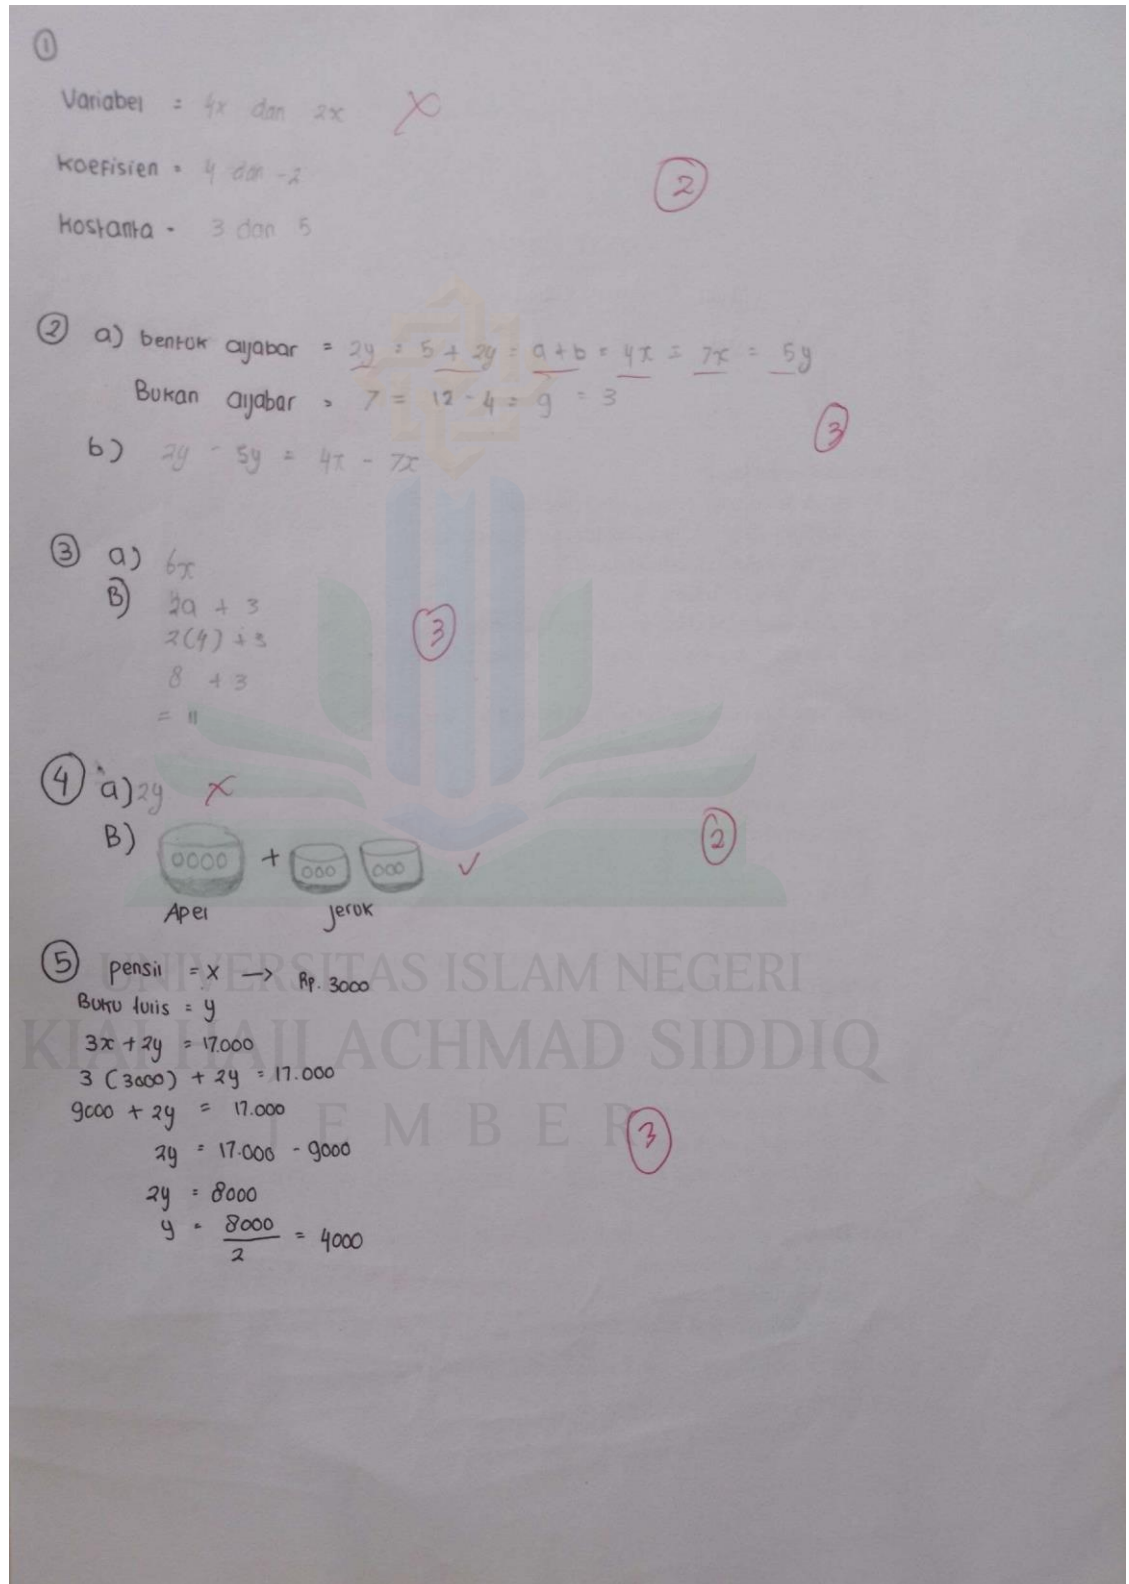 ①
Variabel = 4x dan 2x X
Koefisien = 4 dan -2
②
Kostanta - 3 dan 5
② a) bentuk aljabar = 2y = 5 + 2y = a + b = 4x = 7x = 5y
Bukan aljabar = 7 = 12 - 4 = 9 = 3
③
b) 2y - 5y = 4x - 7x
③ a) 6x
B) 2a + 3
2(4) + 3
③
8 + 3
= 11
④ a) 2y X
B) 0000 + 000 000 ✓
②
Apel Jerok
⑤ pensil = x → Rp. 3000
Buku tulis = y
3x + 2y = 17.000
3 (3000) + 2y = 17.000
9000 + 2y = 17.000
③
2y = 17.000 - 9000
2y = 8000
y = 8000/2 = 4000
UNIVERSITAS ISLAM NEGERI
KIAI HAJI ACHMAD SIDDIQ
JEMBER